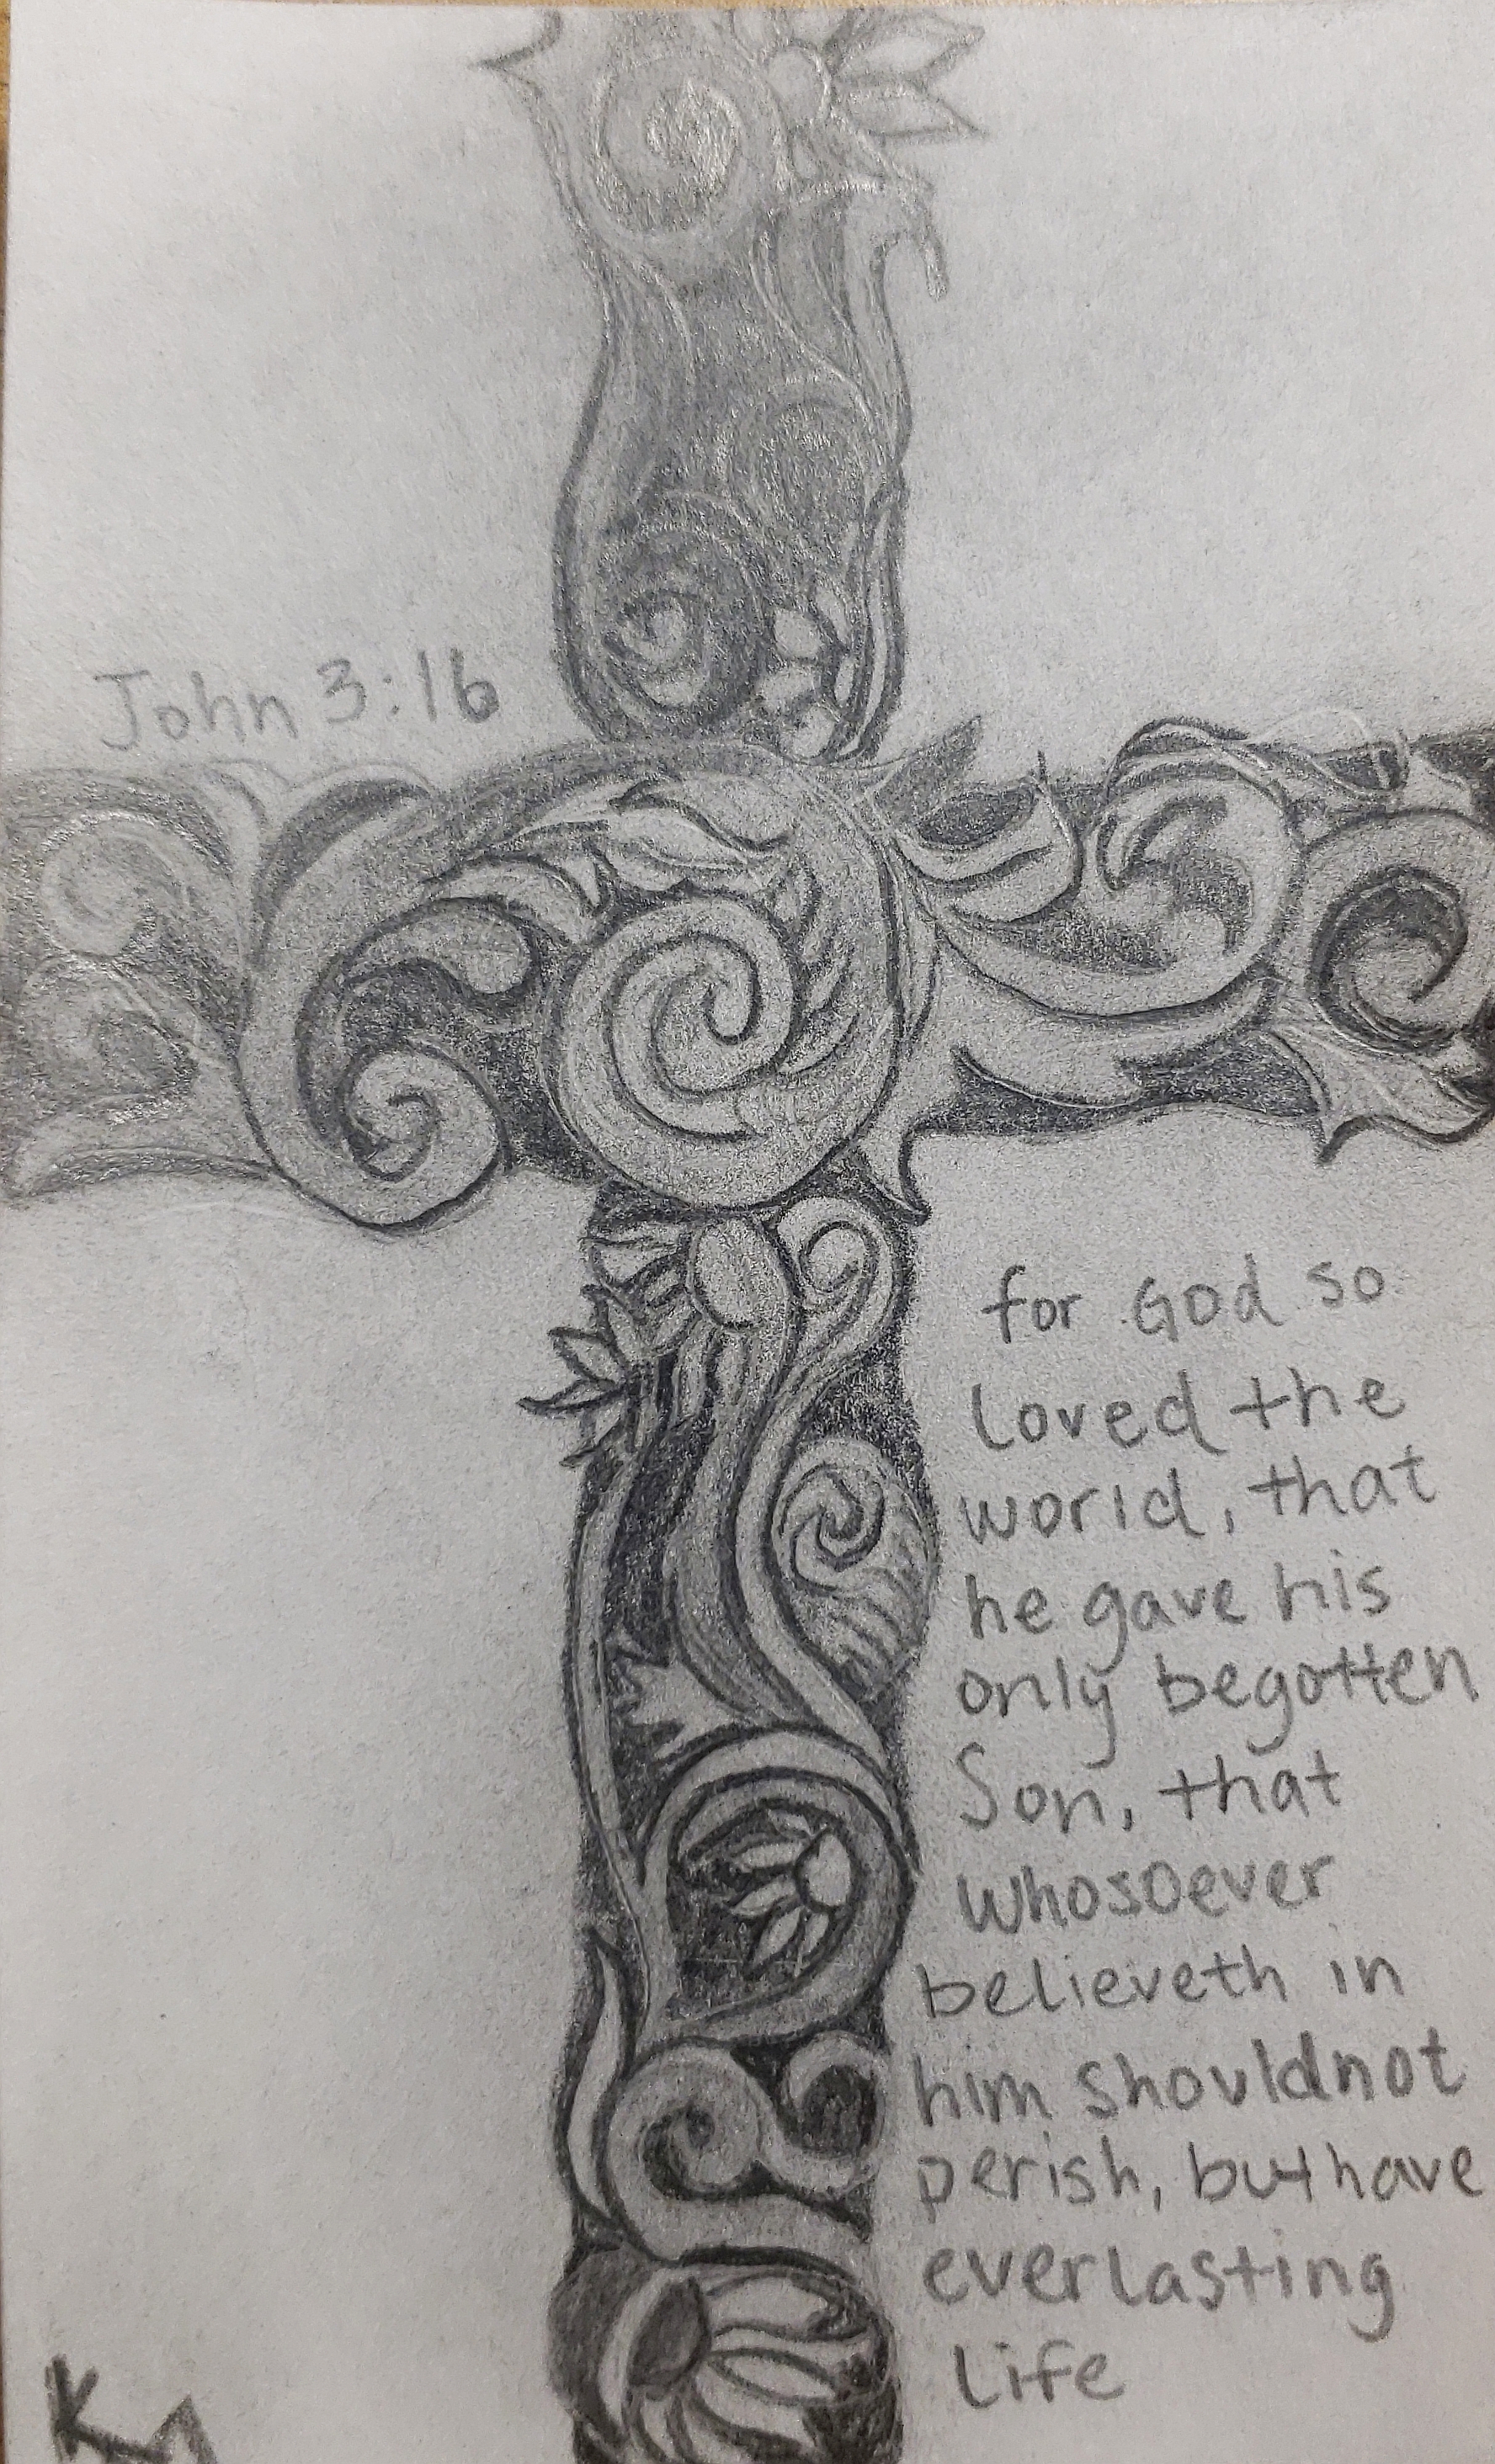 John 3:16
for God so
loved the
world, that
he gave his
only begotten
Son, that
whosoever
believeth in
him should not
perish, but have
everlasting
life
KM